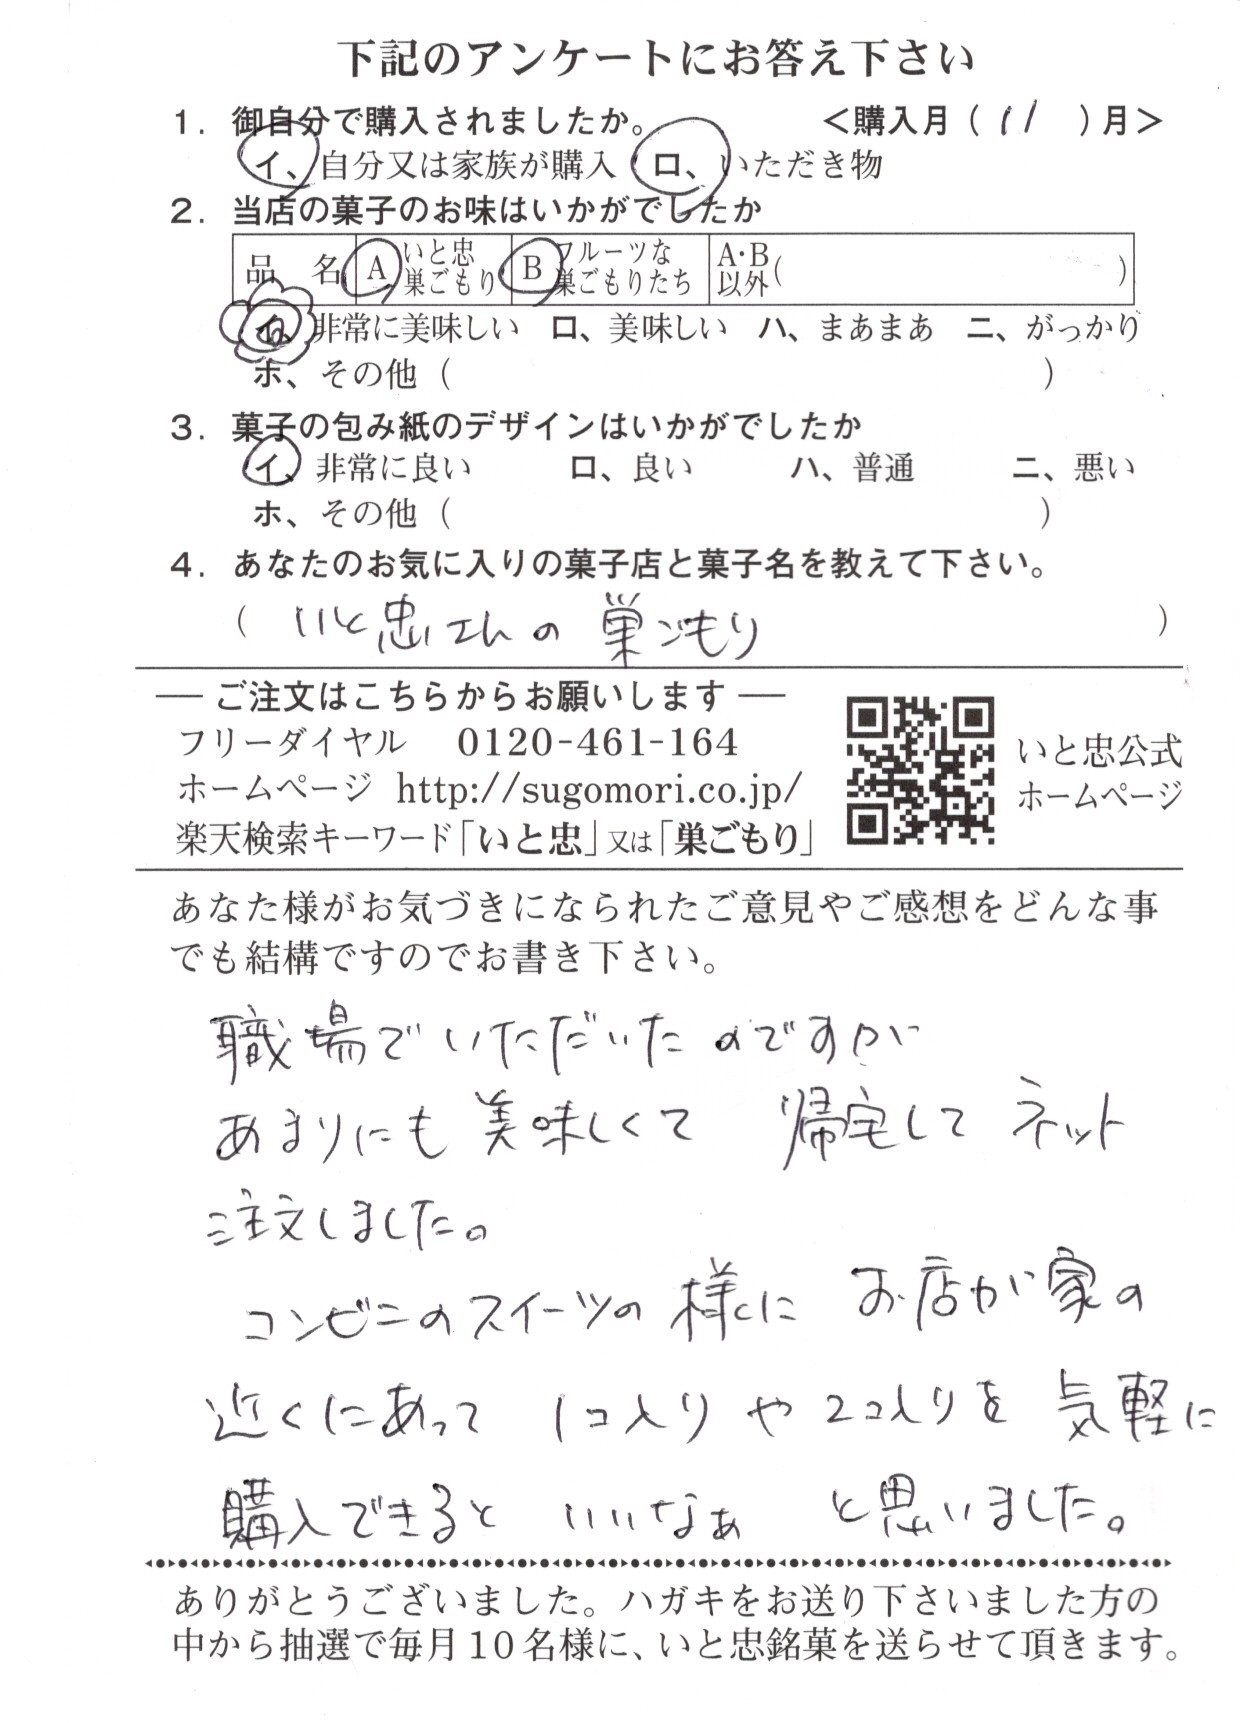 下記のアンケートにお答え下さい
1. 御自分で購入されましたか。 <購入月(11)月>
イ、自分又は家族が購入 ロ、いただき物
2. 当店の菓子のお味はいかがでしたか
品 名 A いと忠巣ごもり B フルーツな巣ごもりたち A・B以外( )
イ、非常に美味しい ロ、美味しい ハ、まあまあ ニ、がっかり
ホ、その他( )
3. 菓子の包み紙のデザインはいかがでしたか
イ、非常に良い ロ、良い ハ、普通 ニ、悪い
ホ、その他( )
4. あなたのお気に入りの菓子店と菓子名を教えて下さい。
( いと忠さんの 巣ごもり )
― ご注文はこちらからお願いします ―
フリーダイヤル 0120-461-164
ホームページ http://sugomori.co.jp/
楽天検索キーワード「いと忠」又は「巣ごもり」
いと忠公式
ホームページ
あなた様がお気づきになられたご意見やご感想をどんな事
でも結構ですのでお書き下さい。
職場でいただいたのですが
あまりにも美味しくて 帰宅して ネット
注文しました。
コンビニのスイーツの様に お店が家の
近くにあって 1コ入りや2コ入りを気軽に
購入できると いいなぁ と思いました。
ありがとうございました。ハガキをお送り下さいました方の
中から抽選で毎月10名様に、いと忠銘菓を送らせて頂きます。